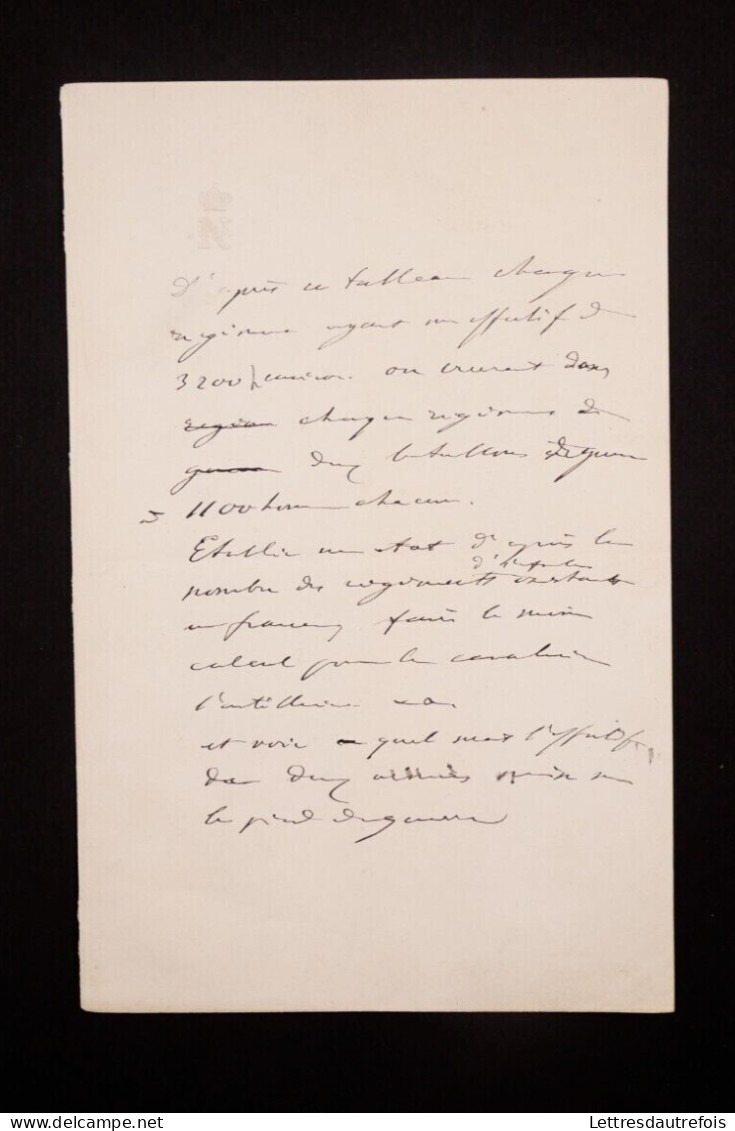 D'après ce tableau chaque
régiment ayant un effectif de
3200 environ on aurait dans
région chaque régiment de
guerre deux bataillons de guerre
1100 hommes chacun.
Etablir un état d'après le
d'infanterie
nombre des régiments existants
en france, faire le même
calcul pour la cavalerie
l'artillerie
et voir à quel sera l'effectif
de deux armées mise sur
le pied de guerre
Lettresdautrefois